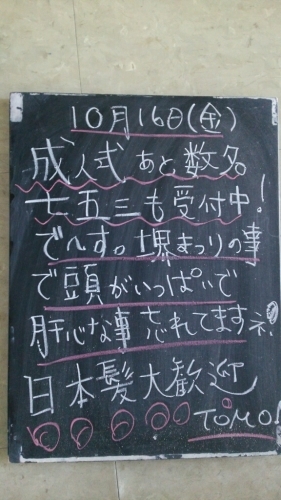 10月16日(金)
成人式あと数名
七五三も受付中!
でへす。堺まつりの事
で頭がいっぱいで
肝心な事忘れてますネ!
日本髪大歓迎
TOMO!